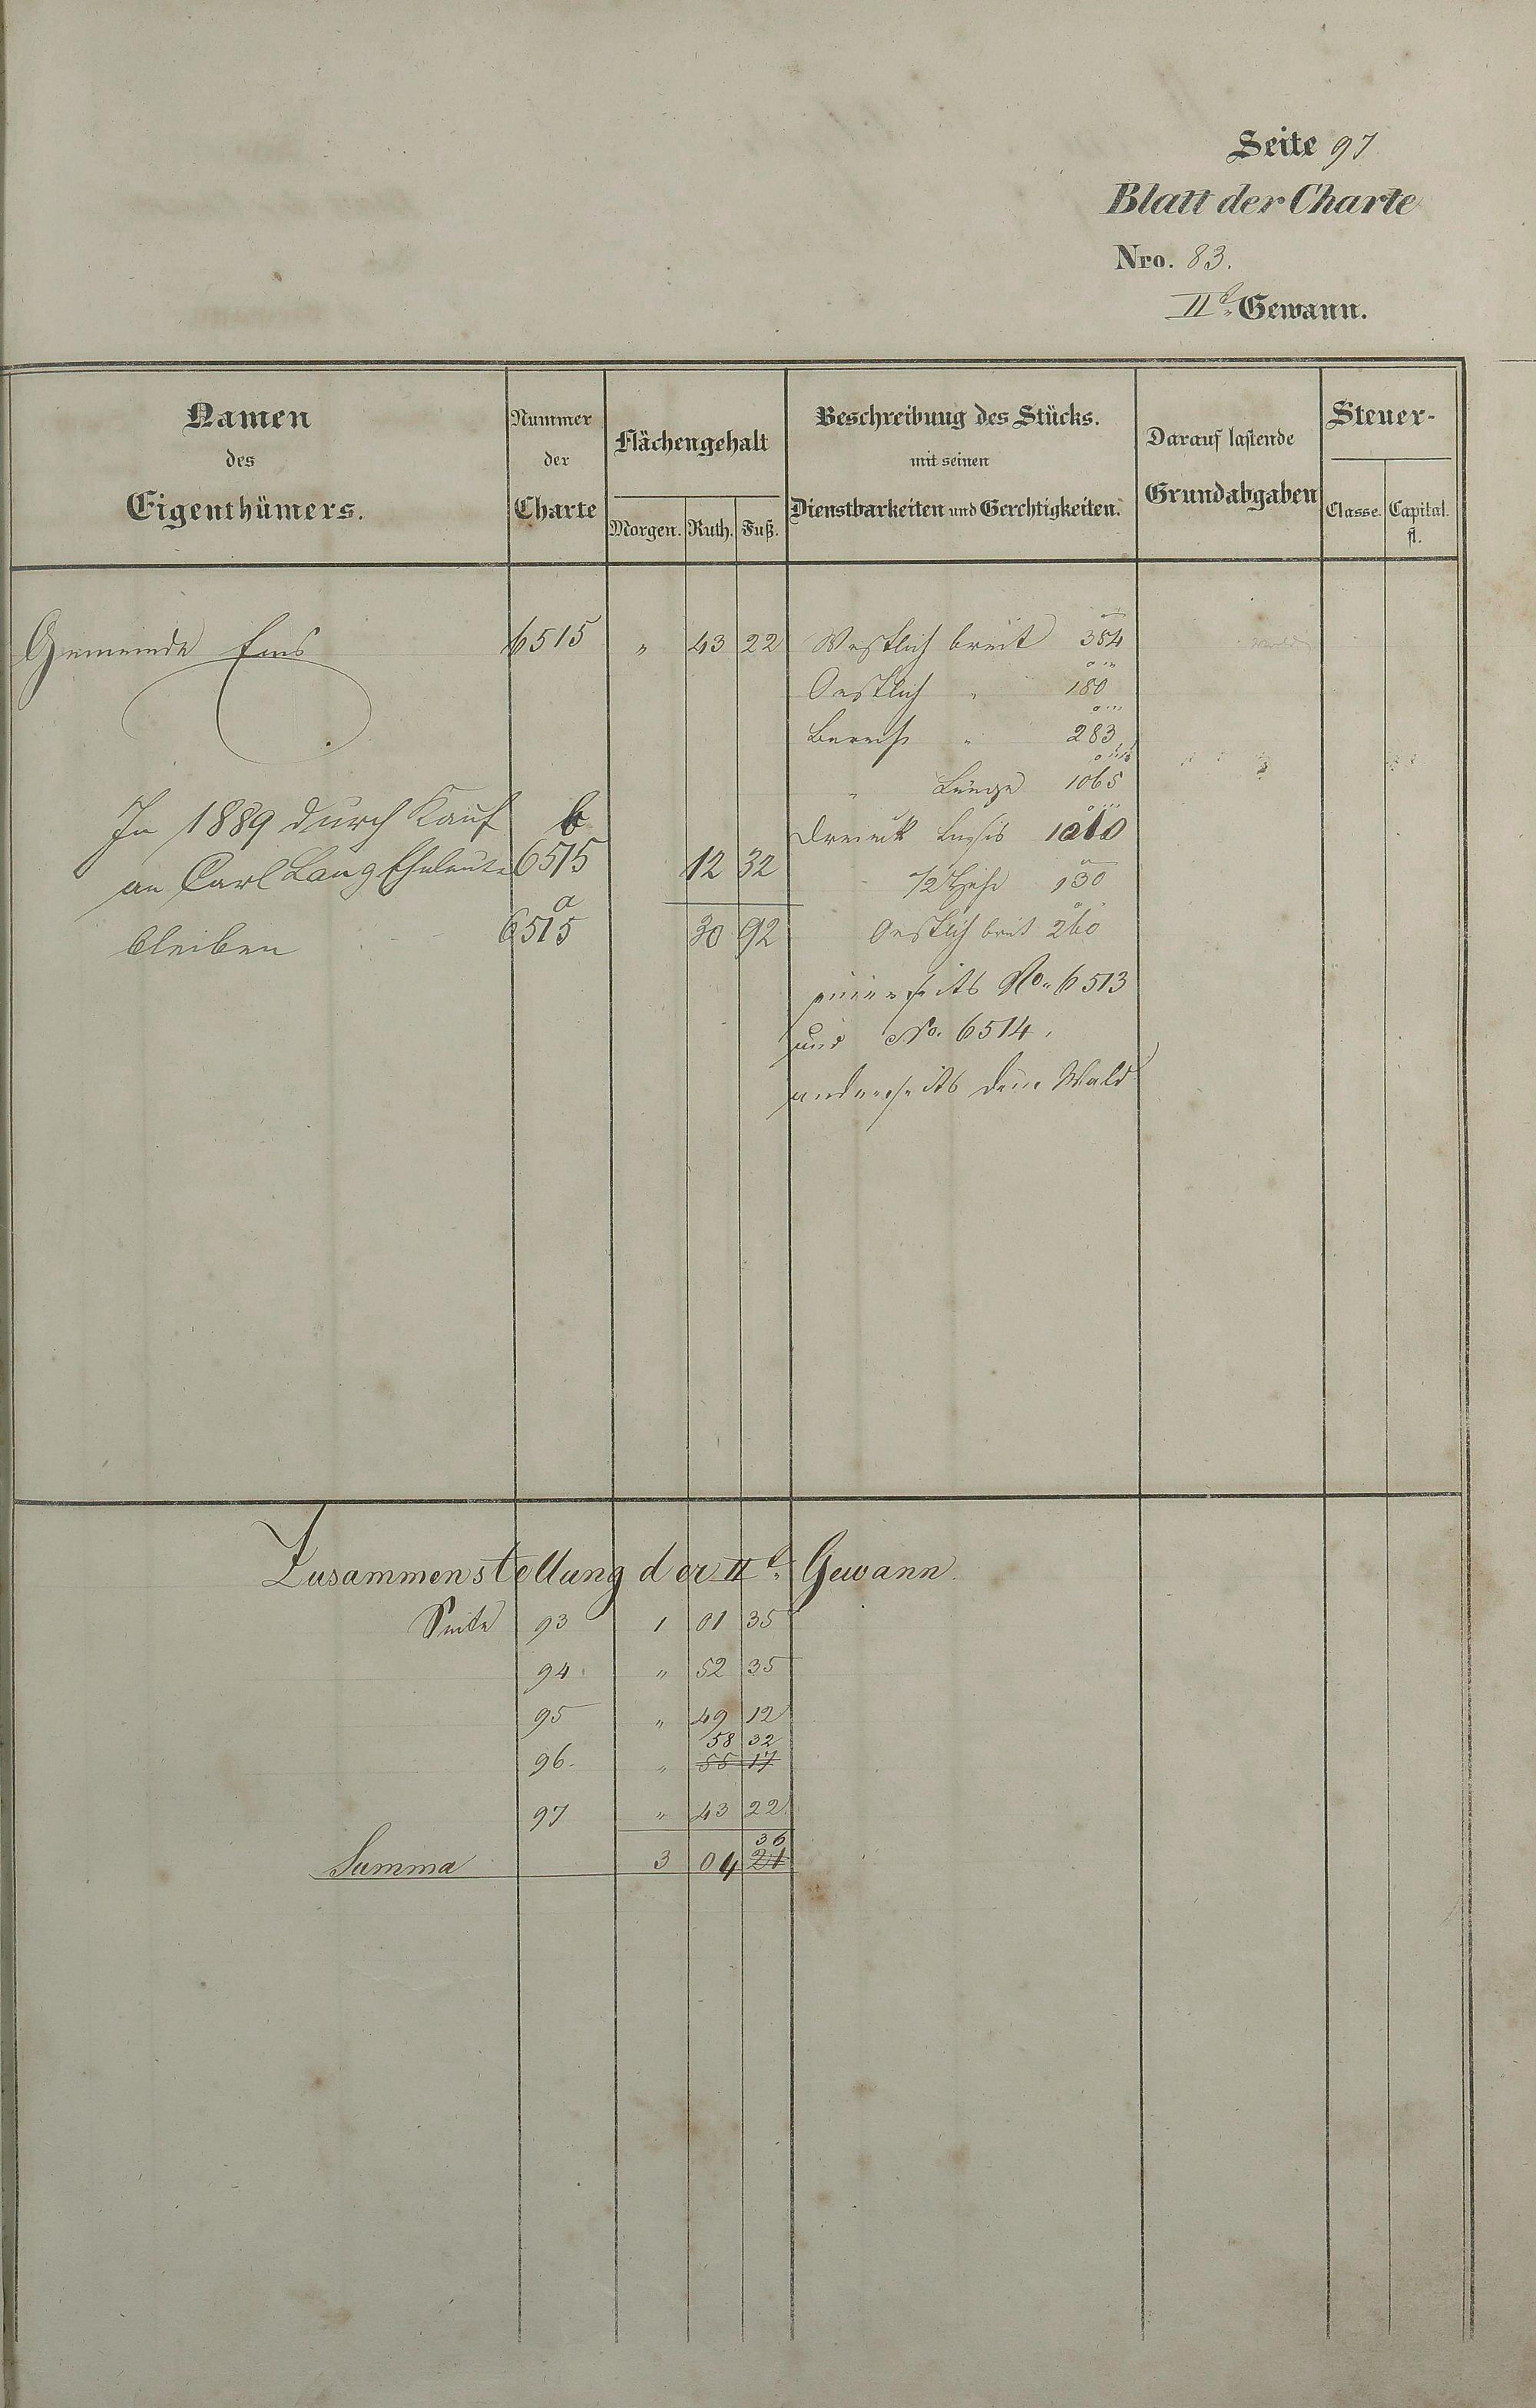 Seite 97
Blatt der Charte
Nro. 83.
IIt. Gewann.
Namen des Eigenthümers.
Nummer der Charte
Flächengehalt
Morgen. Ruth. Fuß.
Beschreibung des Stücks.
mit seinen
Dienstbarkeiten und Gerechtigkeiten.
Darauf lastende
Grundabgaben
Steuer-
Classe. Capital.
fl.
Gemeinde Ems 6515 " 43 22 Westlich breit 384
Oestlich " 180
" 283
" Länge 1065
In 1889 durch Kauf b Dreieck Basis
an Carl Lang Eheleute 6515 12 32 1/2 Höhe 130
a
bleiben 6515 30 92 Oestlich breit 260
einerseits No. 6513
und No. 6514,
anderseits dem Wald
Zusammenstellung der IIt. Gewann.
Seite 93 1 01 35
94 " 52 35
95 " 49 12
58 32
96. " 55 17
97 " 43 22
36
Summa 3 04 21